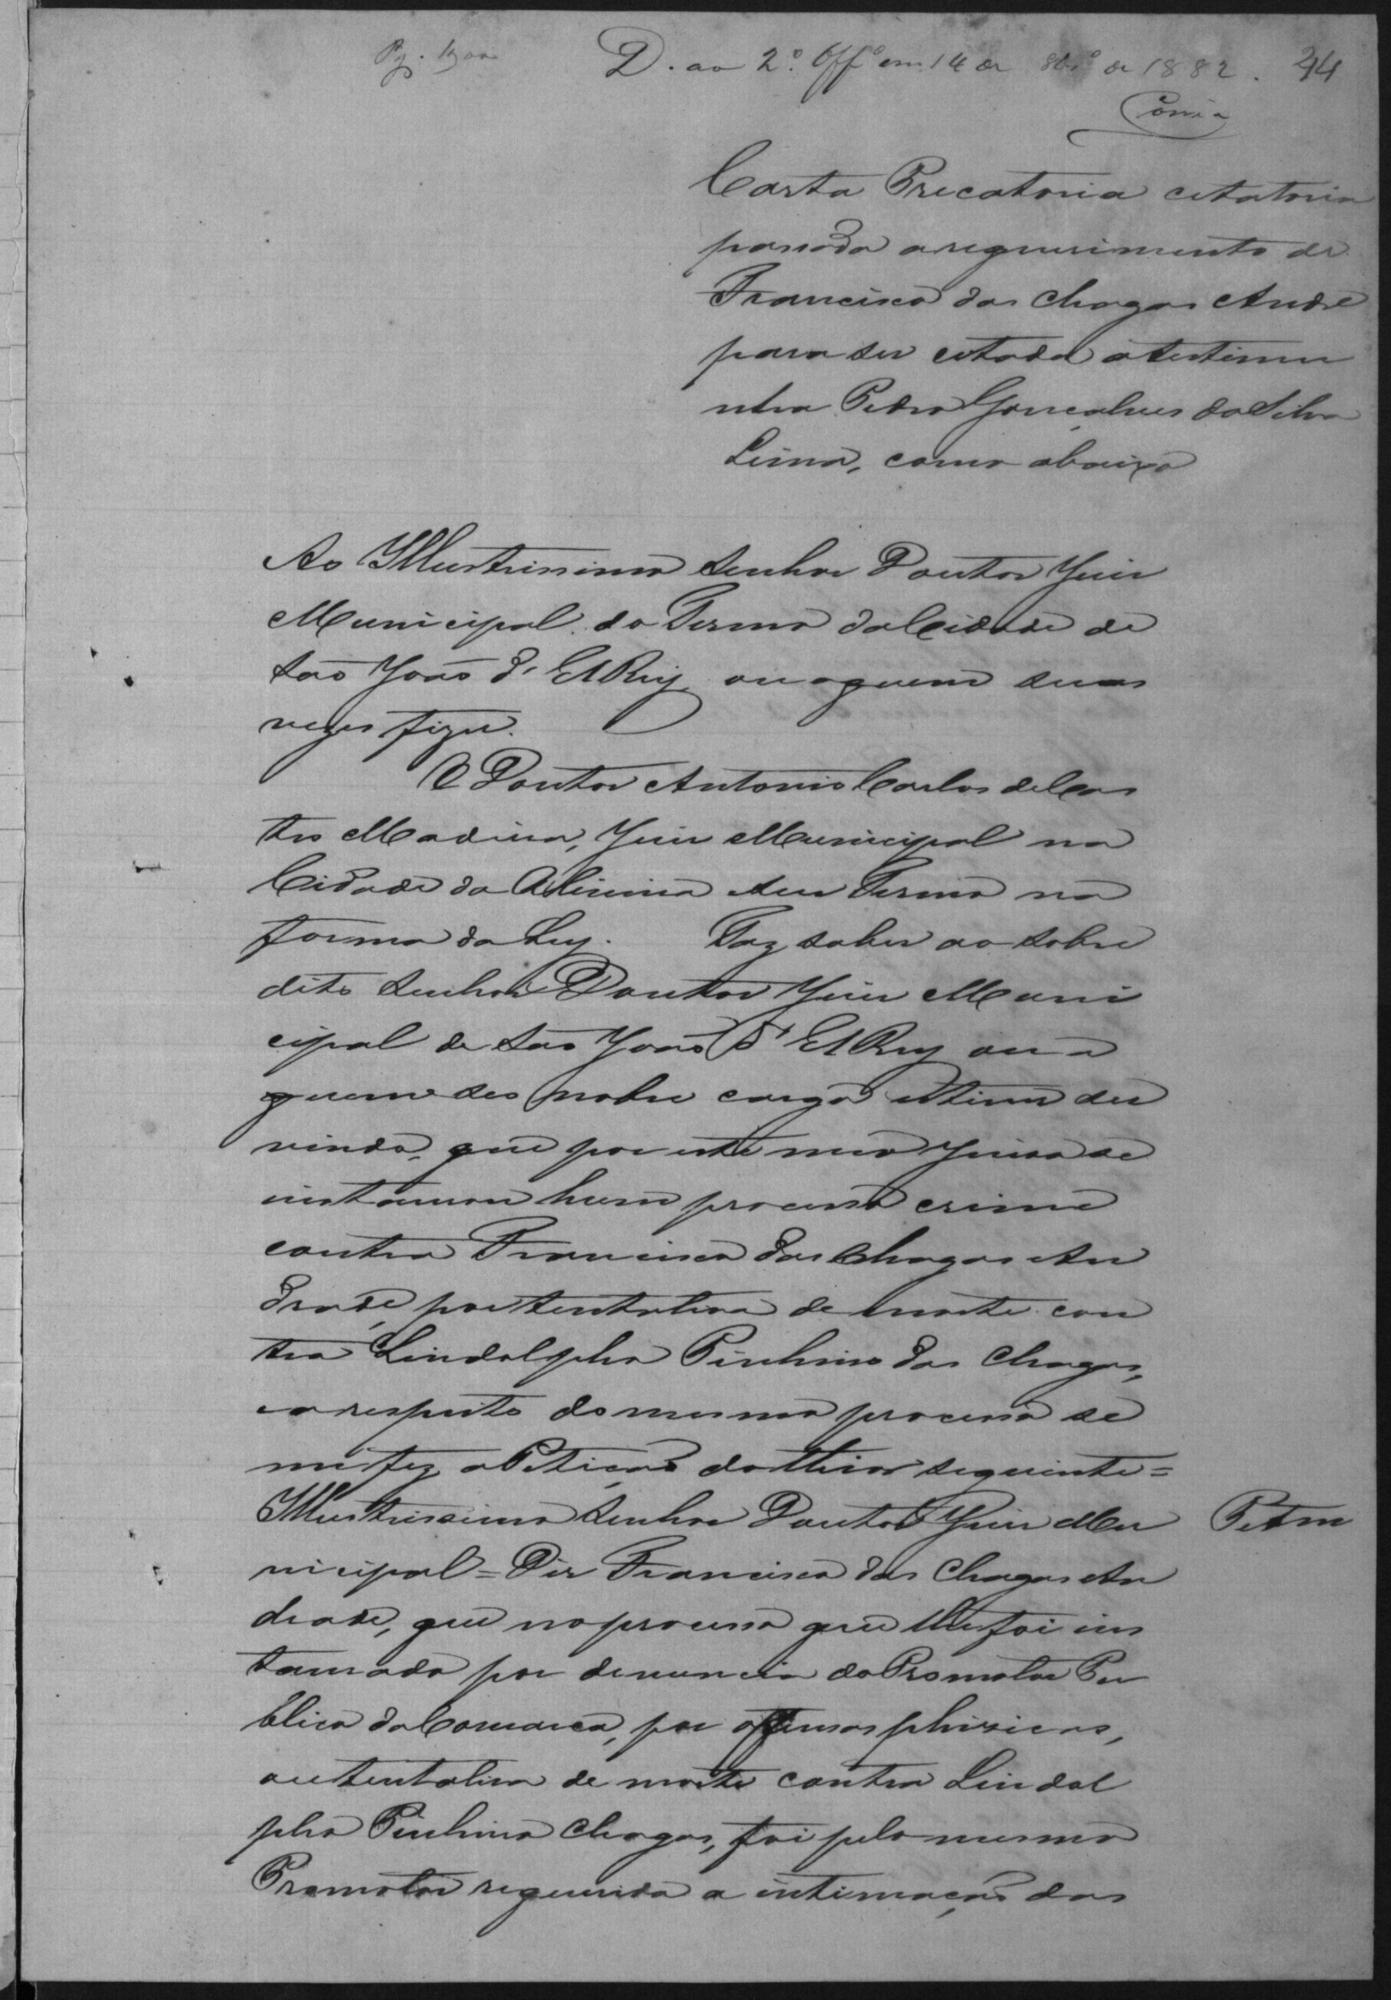 D. ao 2.º Offº em 14 de 8brº de 1882. 44
Carta Precatoria citatoria
passada a requerimento de
Francisco das Chagas André
para ser citada a testimu
nha Pedro Gonçalves da Silva
Lima, como abaixo
Ao Illustrissimo Senhor Doutor Juis
Municipal do Termo da Cidade de
São João d'El Rey ou a quem suas
vezes fizer.
O Doutor Antonio Carlos de Cas
tro Madeira, Juis Municipal na
Cidade da Oliveira e seu Termo na
forma da Ley. Faz saber ao sobre
dito Senhor Doutor Juis Muni
cipal de São João d'El Rey ou a
quem seo nobre cargo estiver ser
vindo, que por este meo Juiso se
instaurou hum processo crime
contra Francisco das Chagas An
drade, por tentativa de morte con
tra Lindolpho Pinheiro das Chagas,
e a respeito do mesmo processo se
me fez a Petição do theor seguinte =
Illustrissimo Senhor Doutor Juis Mu
Petam
nicipal = Diz Francisco das Chagas An
drade, que no processo que lhe foi ins
taurado por denuncia do Promotor Pu
blico da Comarca, por offensas phisicas,
ou tentativa de morte contra Lindol
pho Pinheiro Chagas, foi pelo mesmo
Promotor requerida a intimação das